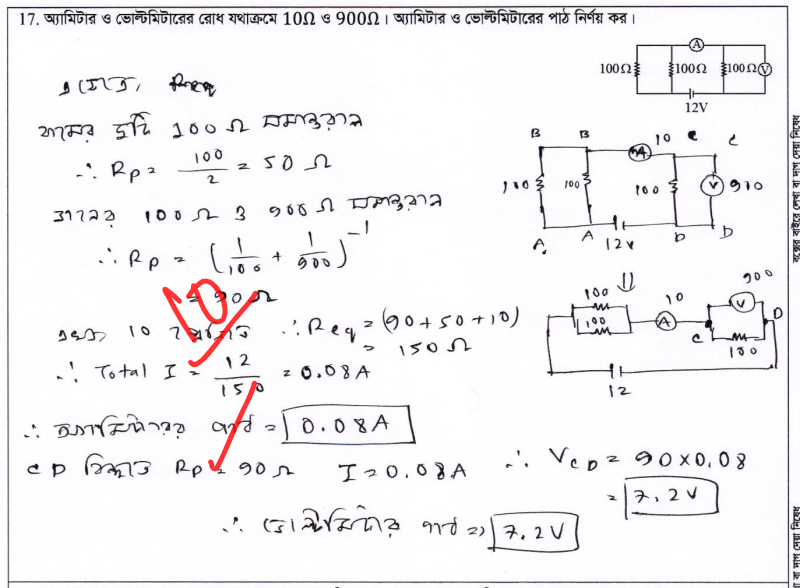 17. অ্যামিটার ও ভোল্টমিটারের রোধ যথাক্রমে 10Ω ও 900Ω। অ্যামিটার ও ভোল্টমিটারের পাঠ নির্ণয় কর।
A
100Ω 100Ω 100Ω V
12V
এক্ষেত্রে, Req
বামের দুটি 100 Ω সমান্তরাল
∴ Rp = 100/2 = 50 Ω
ডানের 100 Ω ও 900 Ω সমান্তরাল
∴ Rp = (1/100 + 1/900)^-1
= 90 Ω
10
∴ Req = (90+50+10)
= 150 Ω
∴ Total I = 12/150 = 0.08A
∴ অ্যামিটারের পাঠ = 0.08A
CD বিন্দুতে Rp = 90 Ω I = 0.08A ∴ VCD = 90×0.08
= 7.2V
∴ ভোল্টমিটার পাঠ => 7.2V
B B 10 C C
A
100 100 100 V 900
A A 12V D D
100 10 900
100 A V D
C 100
12
10
বক্সের বাইরে লেখা বা দাগ দেয়া নিষেধ
বা দাগ দেয়া নিষেধ